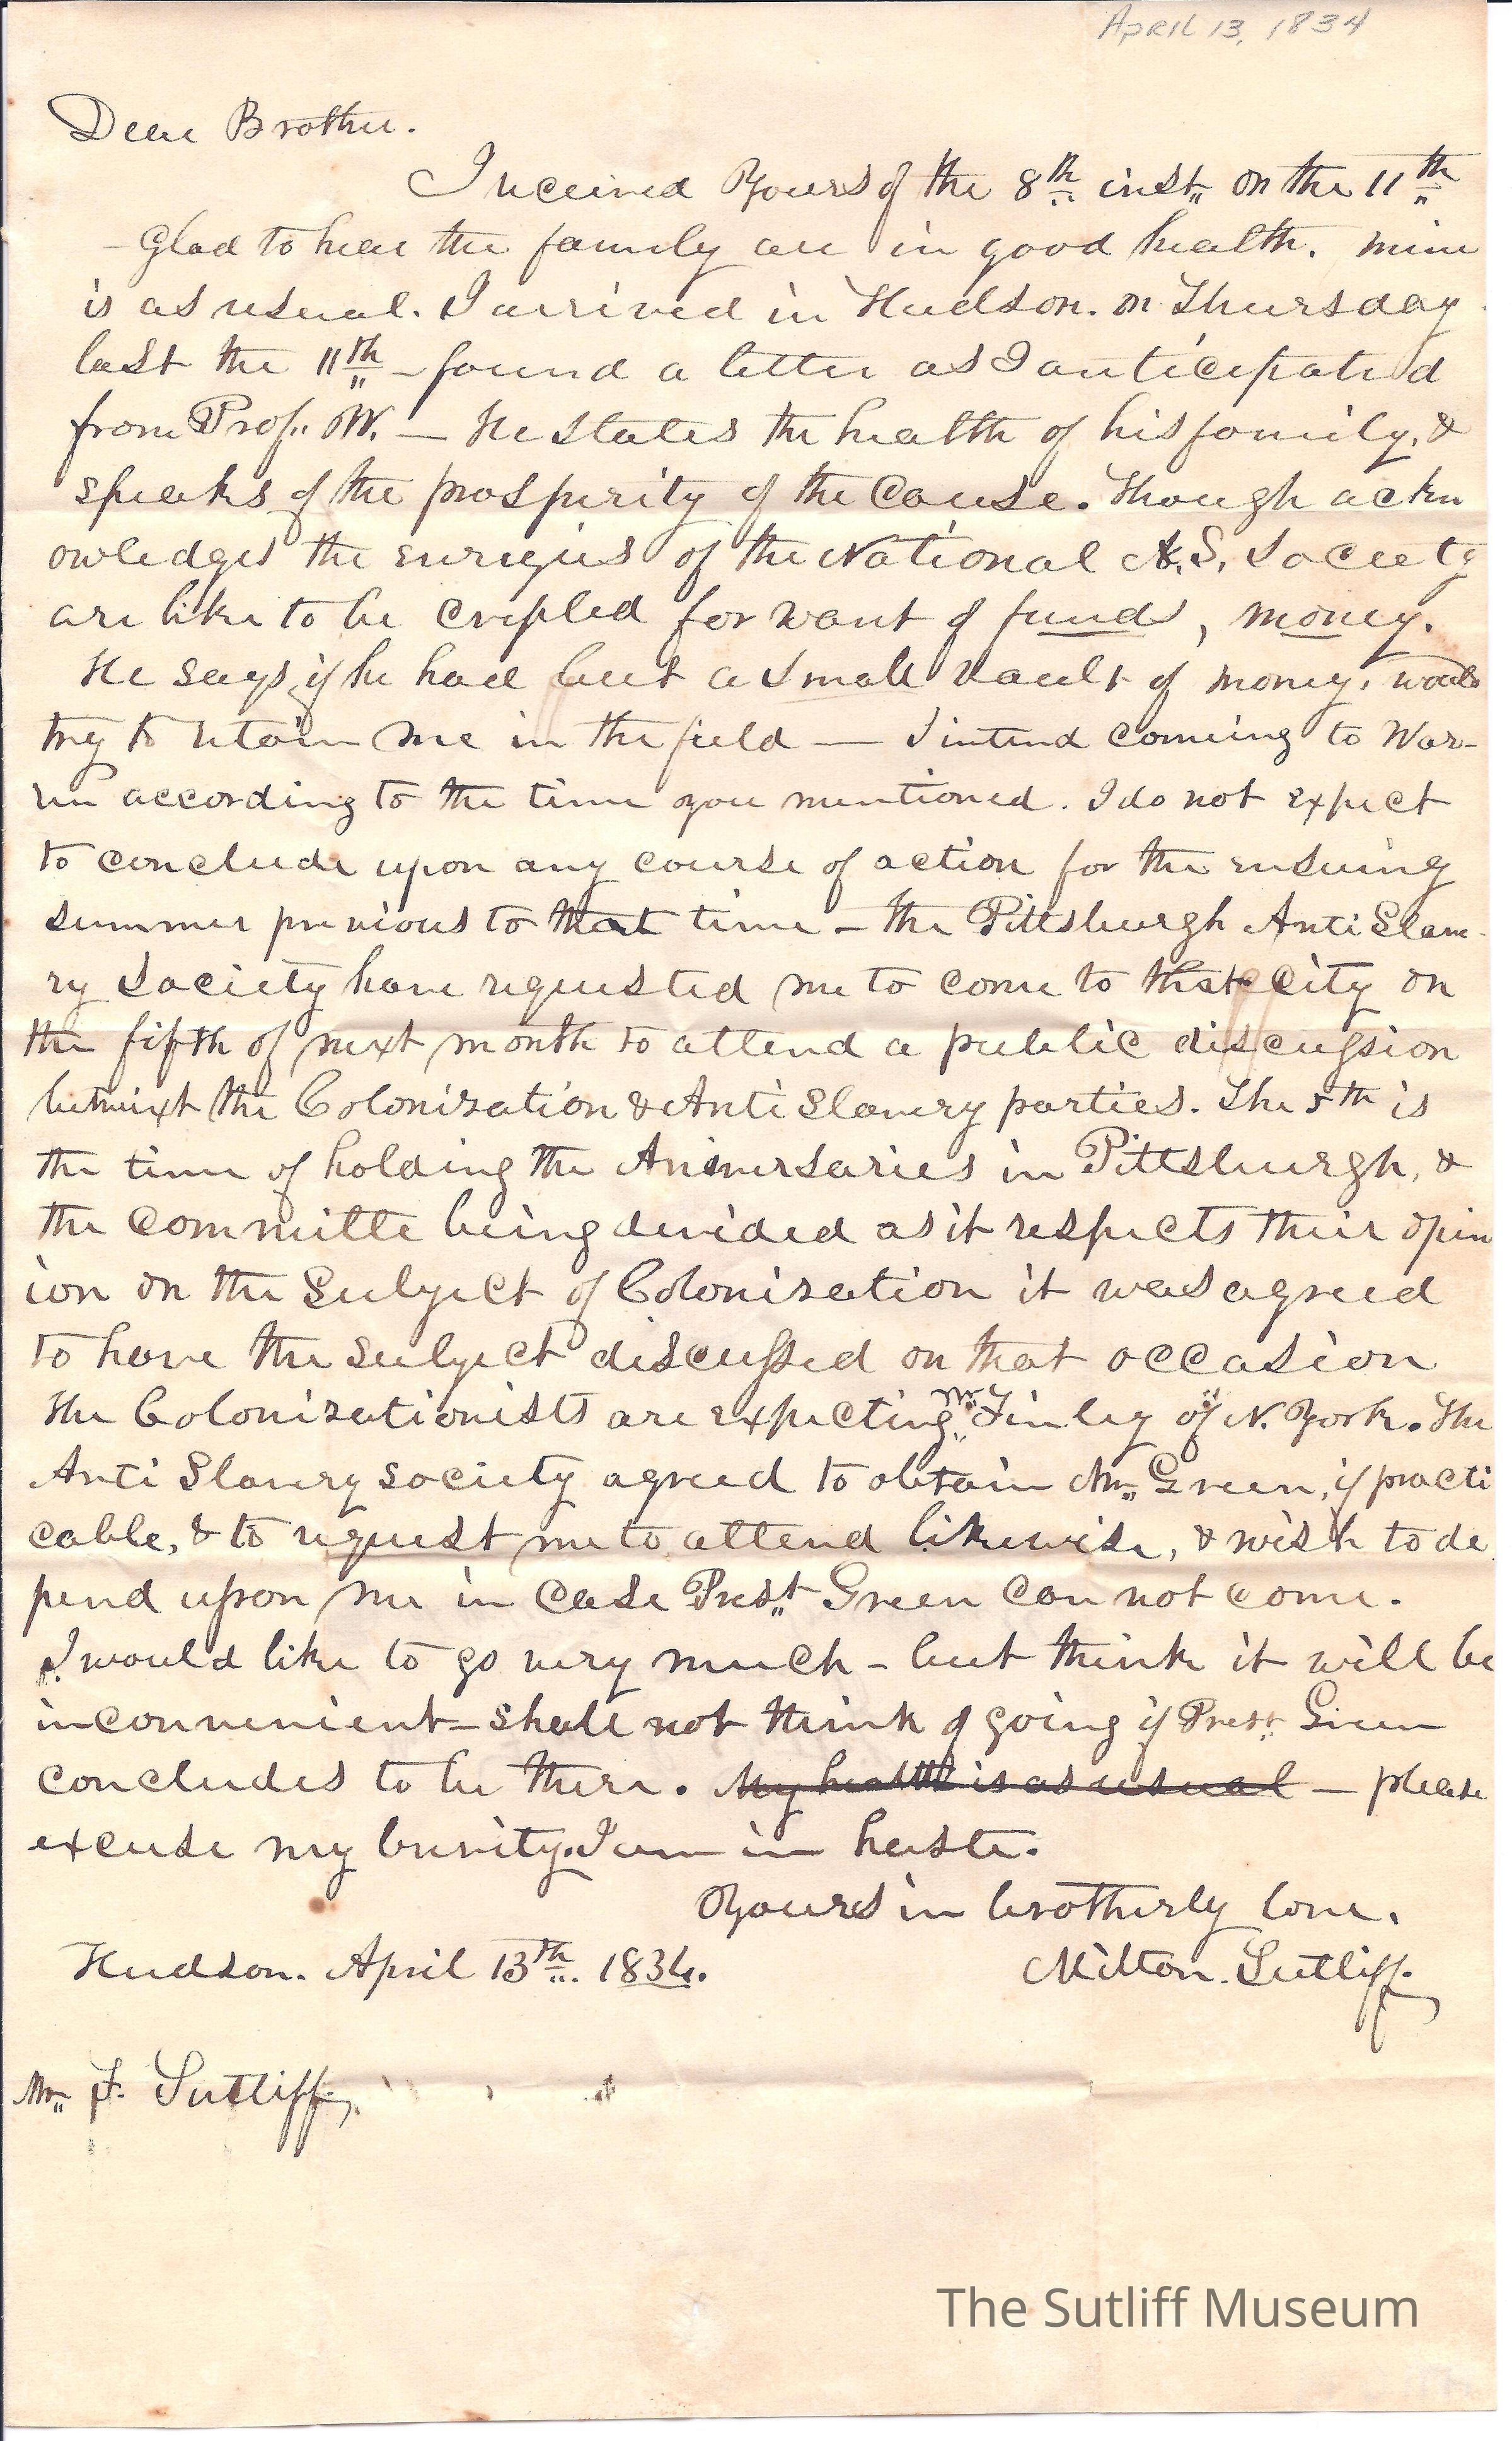 April 13, 1834
Dear Brother.
I received Yours of the 8th inst. on the 11th
- Glad to hear the family are in good health. mine
is as usual. I arrived in Hudson. on Thursday
last the 11th - found a letter as I anticipated
from Prof. W. — He states the health of his family, &
speaks of the prosperity of the Cause. Though ackn
owledges the energies of the National A. S. Society
are like to be cripled for want of funds, money.
He says if he had but a small vault of money, would
try to retain me in the field — I intend comeing to War-
ren according to the time you mentioned. I do not expect
to conclude upon any course of action for the ensuing
summer previous to that time - the Pittsburgh Anti Slave-
ry Society have requested me to come to that City on
the fifth of next month to attend a public discussion
betwixt the Colonization & Anti Slavery parties. The 5th is
the time of holding the Aniversaries in Pittsburgh, &
the committe being devided as it respects their opin
ion on the Subject of Colonization it was agreed
to have the subject discussed on that occasion
the Colonizationists are expecting Mr. Finley of N. York. The
Anti Slavery society agreed to obtain Mr. Green, if practi
cable, & to request me to attend likewise, & wish to de
pend upon me in case Prest. Green can not come.
I would like to go very much - but think it will be
inconvenient - shall not think of going if Prest. Green
concludes to be there. My health is as usual — please
excuse my brevity. I am in haste.
Yours in brotherly love.
Hudson. April 13th. 1834. Milton. Sutliff.
Mr. F. Sutliff,
The Sutliff Museum